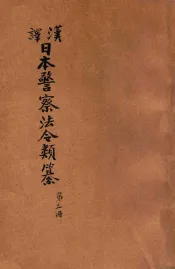 漢譯
日本警察法令類纂
第三冊